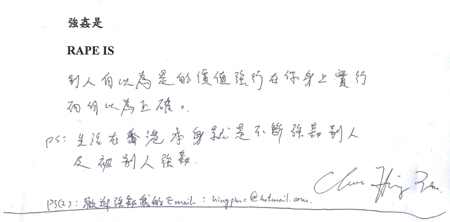 強姦是
RAPE IS
別人自以為是的價值強行在你身上實行
而何以為正確。
PS: 生活在香港本身就是不斷強姦別人
及被別人強姦.
PS(2): 我的Email: @hotmail.com